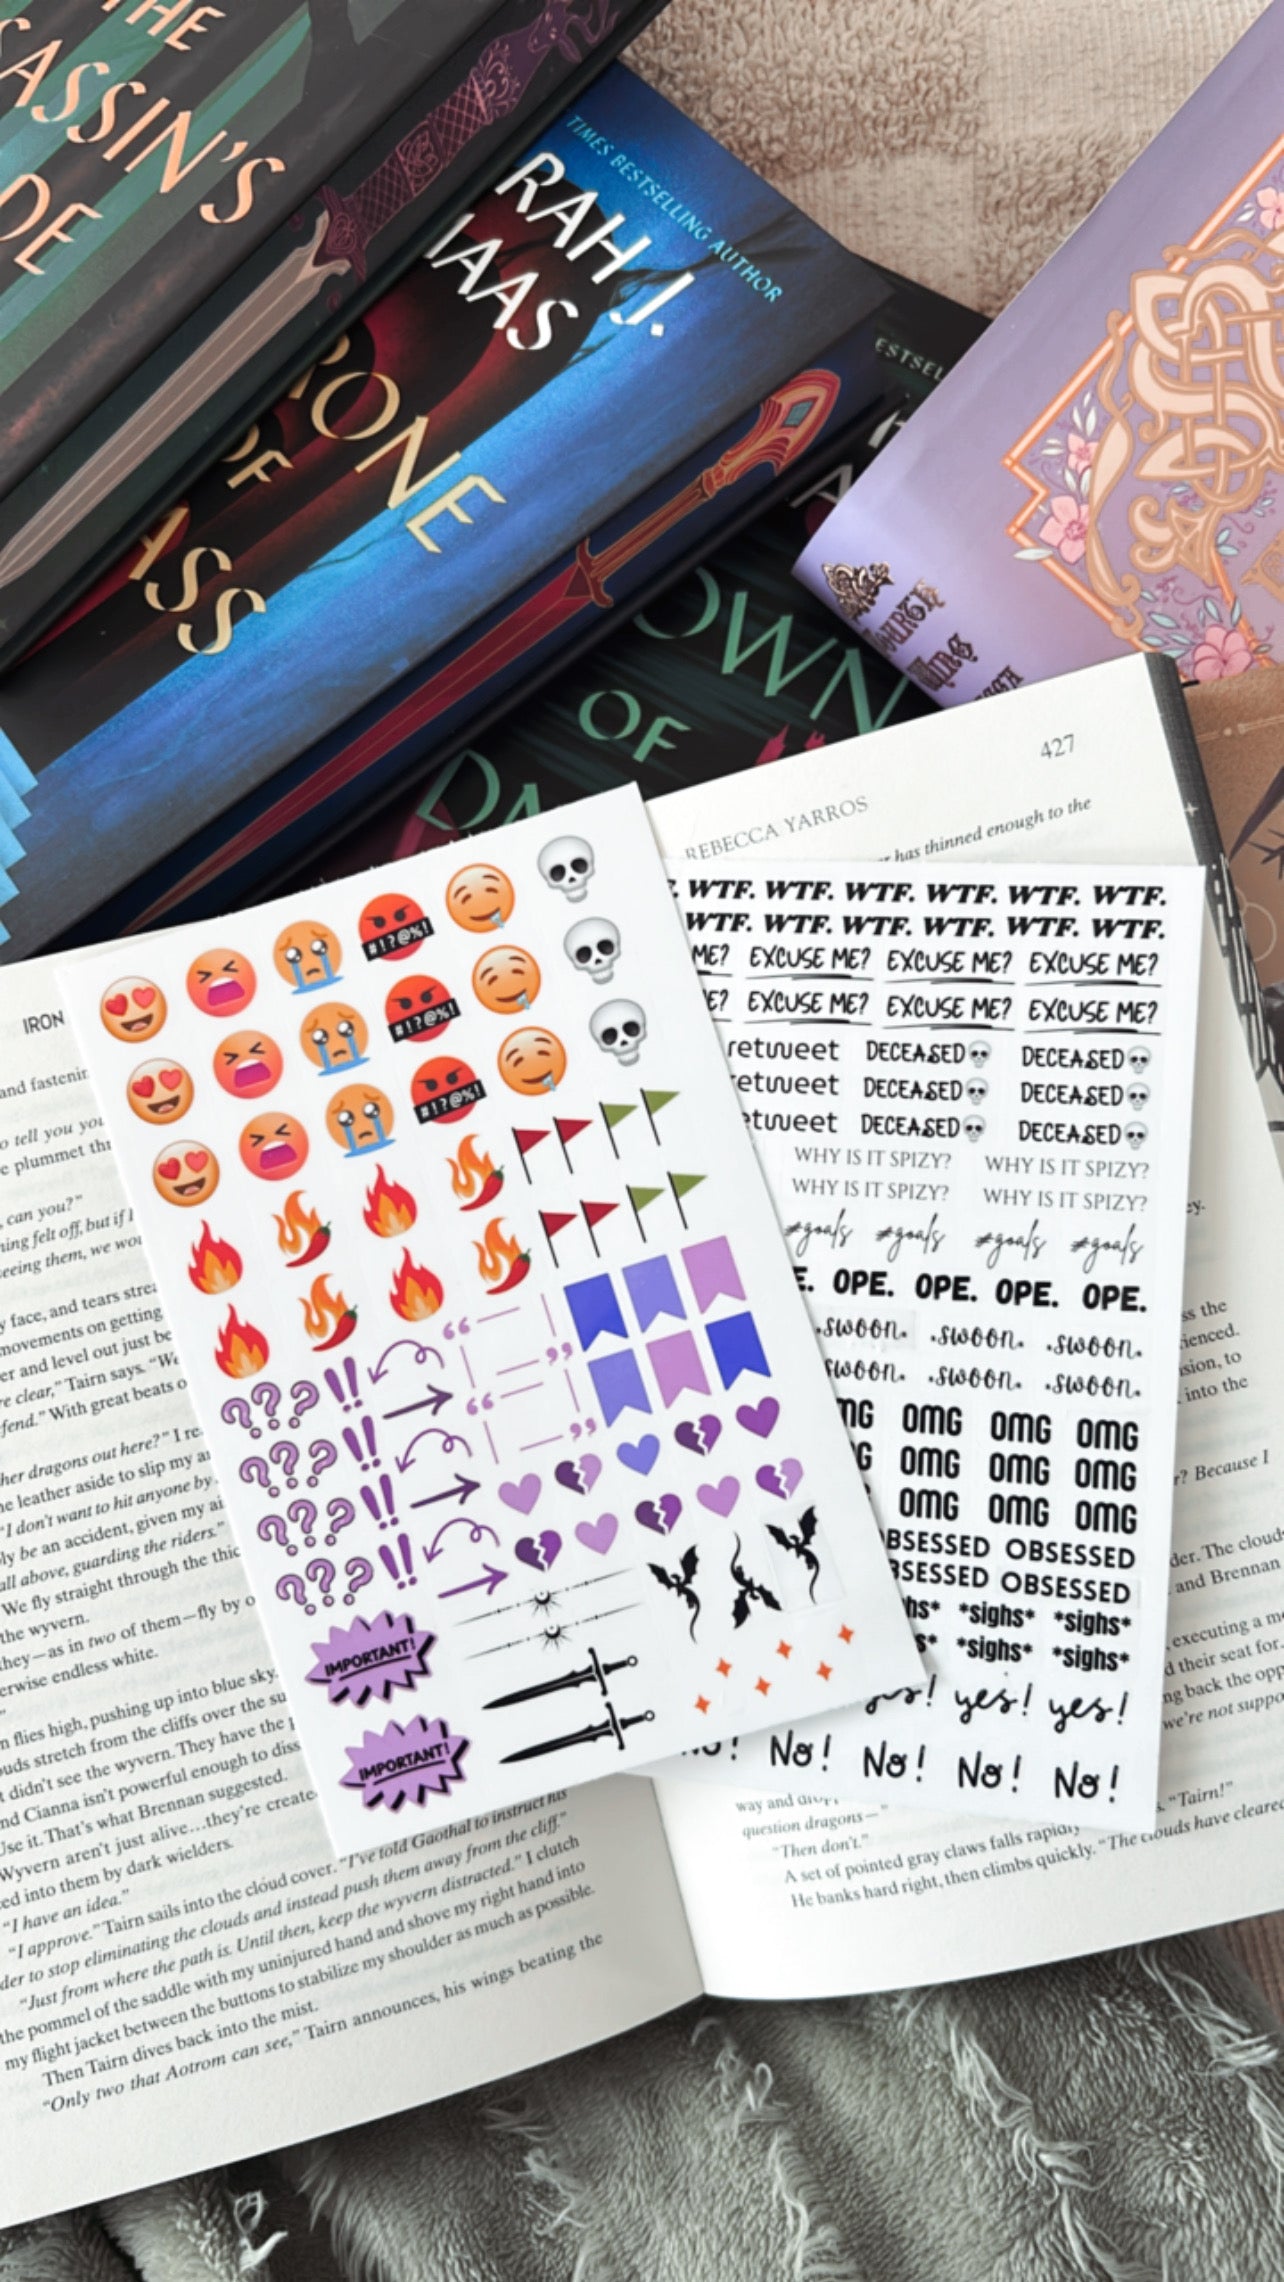 THE
ASSASSIN'S
DE
TIMES BESTSELLING AUTHOR
RAH J.
MAAS
RONE
OF
ASS
ESTSEL
OWN
OF
DA
427
REBECCA YARROS
has thinned enough to the
IRON
and fastenin
o tell you you
e plummet th
, can you?"
ning felt off, but if I
seeing them, we wou
y face, and tears strea
movements on getting
er and level out just be
re clear," Tairn says. "We
fend." With great beats o
her dragons out here?" I re
ne leather aside to slip my a
"I don't want to hit anyone by
ly be an accident, given my ai
all above, guarding the riders."
We fly straight through the thic
the wyvern.
they—as in two of them—fly by o
erwise endless white.
n flies high, pushing up into blue sky.
ouds stretch from the cliffs over the su
t didn't see the wyvern. They have the
nd Cianna isn't powerful enough to diss
Use it. That's what Brennan suggested.
Wyvern aren't just alive...they're create
ed into them by dark wielders.
"I have an idea."
"I approve." Tairn sails into the cloud cover. "I've told Gaothal to instruct his
der to stop eliminating the clouds and instead push them away from the cliff."
"Just from where the path is. Until then, keep the wyvern distracted." I clutch
the pommel of the saddle with my uninjured hand and shove my right hand into
my flight jacket between the buttons to stabilize my shoulder as much as possible.
Then Tairn dives back into the mist.
"Only two that Aotrom can see," Tairn announces, his wings beating the
#!?@%!
#!?@%!
#!?@%!
??? !!
??? !!
??? !!
??? !!
IMPORTANT!
IMPORTANT!
WTF. WTF. WTF. WTF. WTF. WTF.
WTF. WTF. WTF. WTF. WTF. WTF.
ME? EXCUSE ME? EXCUSE ME? EXCUSE ME?
E? EXCUSE ME? EXCUSE ME? EXCUSE ME?
retweet DECEASED DECEASED
retweet DECEASED DECEASED
etweet DECEASED DECEASED
WHY IS IT SPIZY? WHY IS IT SPIZY?
WHY IS IT SPIZY? WHY IS IT SPIZY?
#goals #goals #goals #goals
E. OPE. OPE. OPE. OPE.
.swoon. .swoon. .swoon.
swoon. .swoon. .swoon.
MG OMG OMG OMG
G OMG OMG OMG
OMG OMG OMG
OBSESSED OBSESSED
BSESSED OBSESSED
hs* *sighs* *sighs*
s* *sighs* *sighs*
yes! yes! yes!
No! No! No! No! No!
ey.
ss the
ienced.
sion, to
into the
r? Because I
der. The clouds
and Brennan
, executing a m
d their seat for.
ng back the opp
we're not suppo
"Tairn!"
way and
question dragons—"
"Then don't."
A set of pointed gray claws falls rapidly
He banks hard right, then climbs quickly. "The clouds have cleared